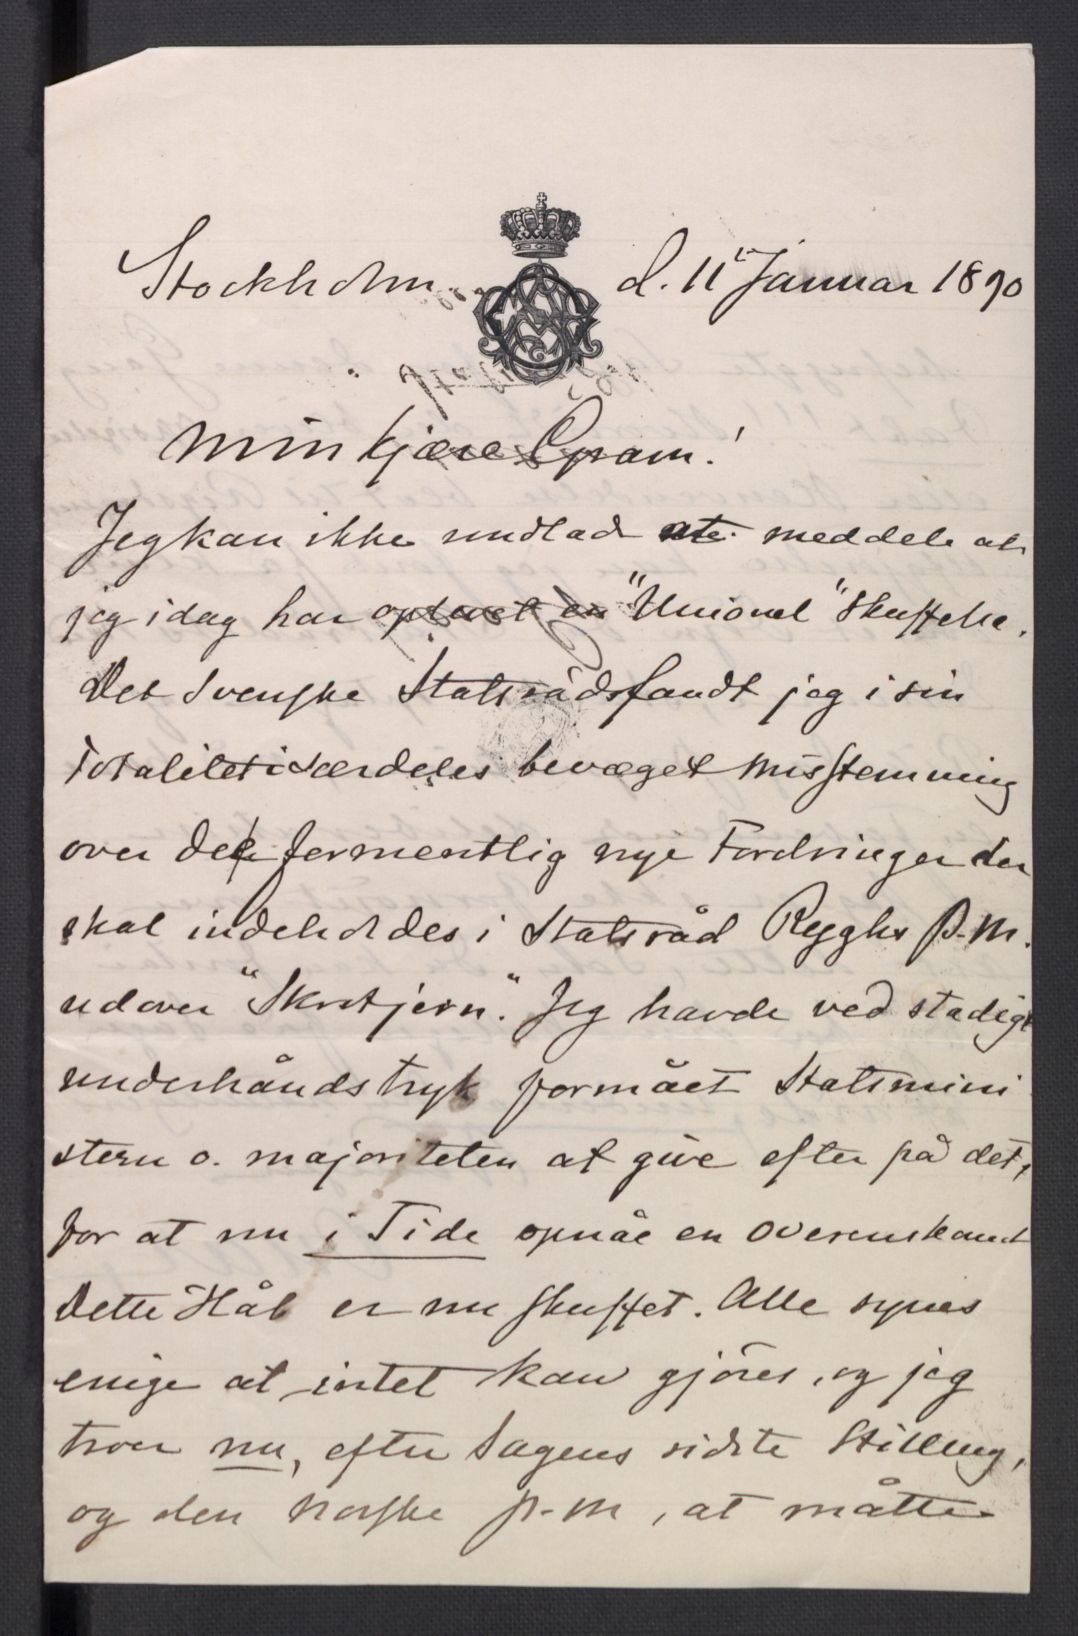 Stockholm d. 11 Januar 1890
Min kjære Gram!
Jeg kan ikke undlade at meddele at
jeg idag har oplevet en "Unionel" Skuffelse.
Det Svenske Statsrådsfandt jeg i sin
Totalitet isærdeles bevæget misstemning
over de formentlig nye Fordringer der
skal indeholdes i Statsråd Ryghs P.M.
udover "Skrotjern". Jeg havde ved stadigt
underhåndstryk formået Statsmini
stern o. majoriteten at give efter på det,
for at nu i Tide opnåe en overenskomst
Dette Håb er nu skuffet. Alle synes
enige at intet kan gjöres, og jeg
troer nu, efter Sagens sidste Stilling,
og den norske P.M, at måtte